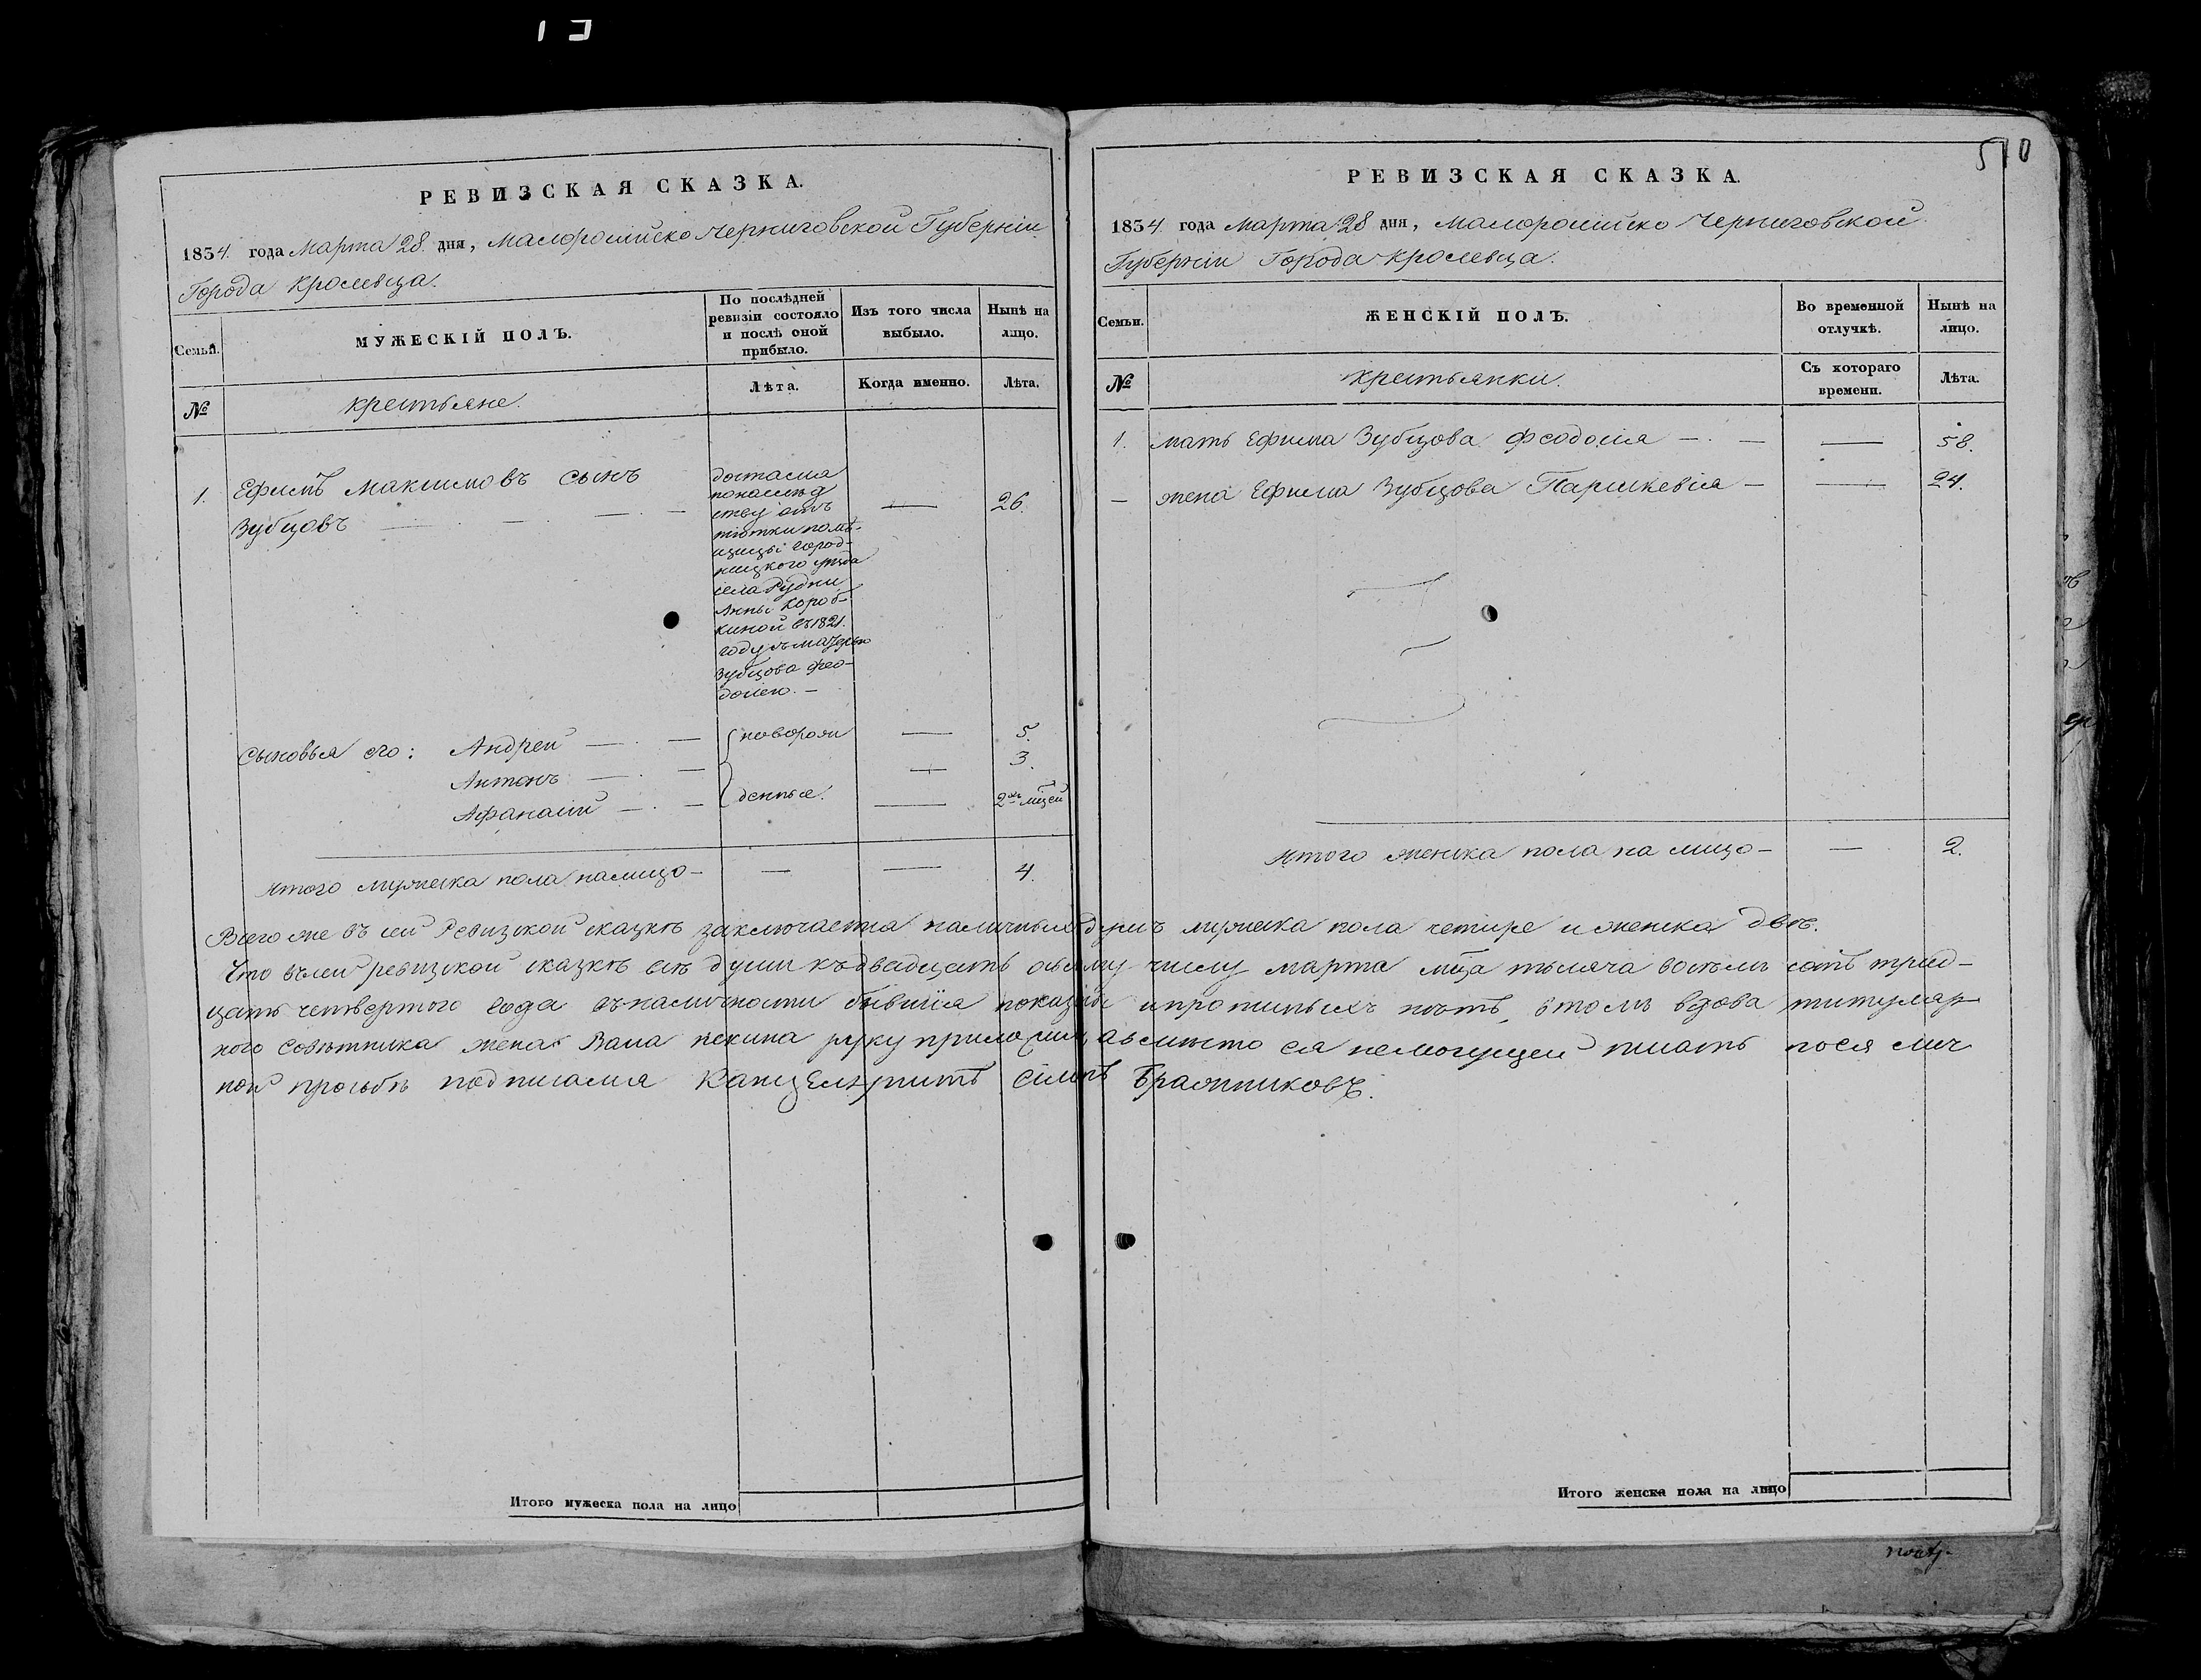 510
РЕВИЗСКАЯ СКАЗКА.
1834. года Марта 28. дня, Малоросийско Черниговской Губерніи
Города Кролевца.
Семьи.
МУЖЕСКІЙ ПОЛЪ.
По послѣдней
ревизіи состояло
и послѣ оной
прибыло.
Изъ того числа
выбыло.
Нынѣ на
лицо.
№
крестьяне.
Лѣта.
Когда именно.
Лѣта.
1. Ефимъ Максимовъ сынъ
Зубцовъ
досталися
понаслѣд
ству отъ
тіотки помѣ-
щицы Город-
ницкого уѣзда
села Рудни
Анны Короб-
киной въ 1821.
году съ матерью
Зубцова Фео-
досією. —
26.
Сыновья его: Андрей — новорож — 5.
Антонъ — 3.
Афанасій — денные. — 2хъ мцей
Итого мужеска пола налицо — 4.
РЕВИЗСКАЯ СКАЗКА.
1834 года Марта 28 дня, Малоросийско Черниговской
Губерніи Города Кролевца.
Семьи.
ЖЕНСКІЙ ПОЛЪ.
Во временной
отлучкѣ.
Нынѣ на
лицо.
№
крестьянки.
Съ котораго
времени.
Лѣта.
1. мать Ефима Зубцова Феодосія — 58.
— жена Ефима Зубцова Параскевія — 24.
Итого женска пола на лицо — 2.
Всего же въ сей Ревизской сказкѣ заключается наличныхъ душъ мужеска пола четире и женска двѣ.
Что въ сей ревизской сказкѣ всѣ души къ двадцать осьмому числу марта мца тысяча восемь сотъ трид-
цать четвертого года въ наличности бывшія показаны и протипыхъ нѣтъ, втомъ вдова титуляр-
ного Совѣтника жена руку приложила, авмѣсто ея немогущей писать поея лич
ной прозьбѣ подписался Канцеляристъ
Итого мужеска пола на лицо
Итого женска пола на лицо